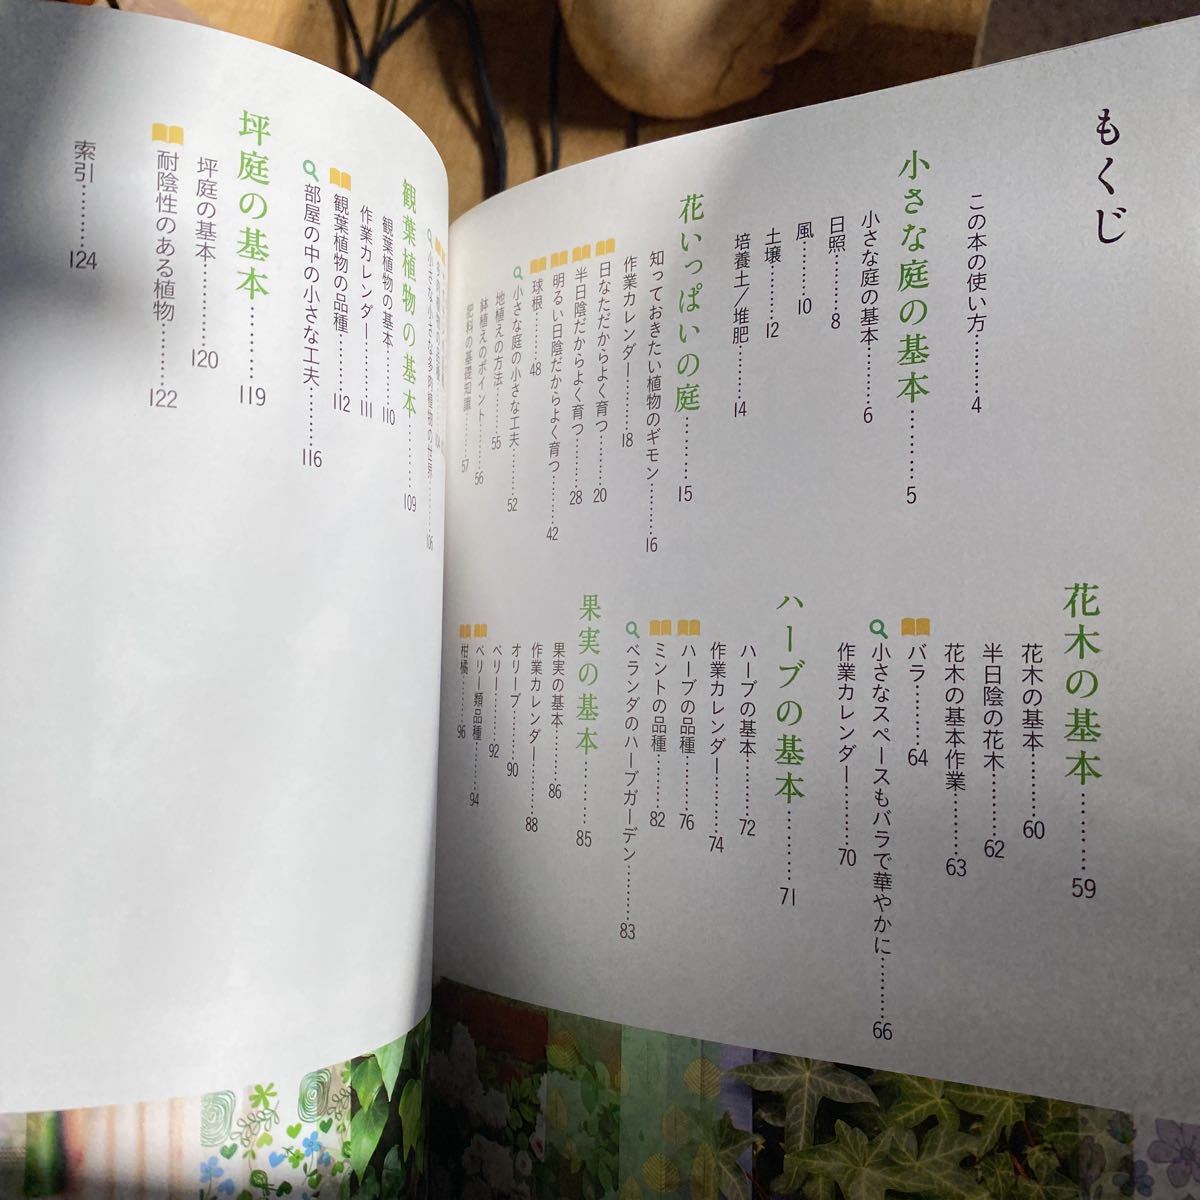 もくじ
この本の使い方………4
小さな庭の基本………5
小さな庭の基本………6
日照………8
風………10
土壌………12
培養土／堆肥………14
花いっぱいの庭………15
知っておきたい植物のギモン………16
作業カレンダー………18
日なただからよく育つ………20
半日陰だからよく育つ………28
明るい日陰だからよく育つ………42
球根………48
小さな庭の小さな工夫………52
地植えの方法………55
鉢植えのポイント………56
肥料の基礎知識………57
花木の基本………59
花木の基本………60
半日陰の花木………62
花木の基本作業………63
バラ………64
小さなスペースもバラで華やかに………66
作業カレンダー………70
ハーブの基本………71
ハーブの基本………72
作業カレンダー………74
ハーブの品種………76
ミントの品種………82
ベランダのハーブガーデン………83
果実の基本………85
果実の基本………86
作業カレンダー………88
オリーブ………90
ベリー………92
ベリー類品種………94
柑橘………96
小さな小さな多肉植物の世界………106
観葉植物の基本………109
観葉植物の基本………110
作業カレンダー………111
観葉植物の品種………112
部屋の中の小さな工夫………116
坪庭の基本………119
坪庭の基本………120
耐陰性のある植物………122
索引………124